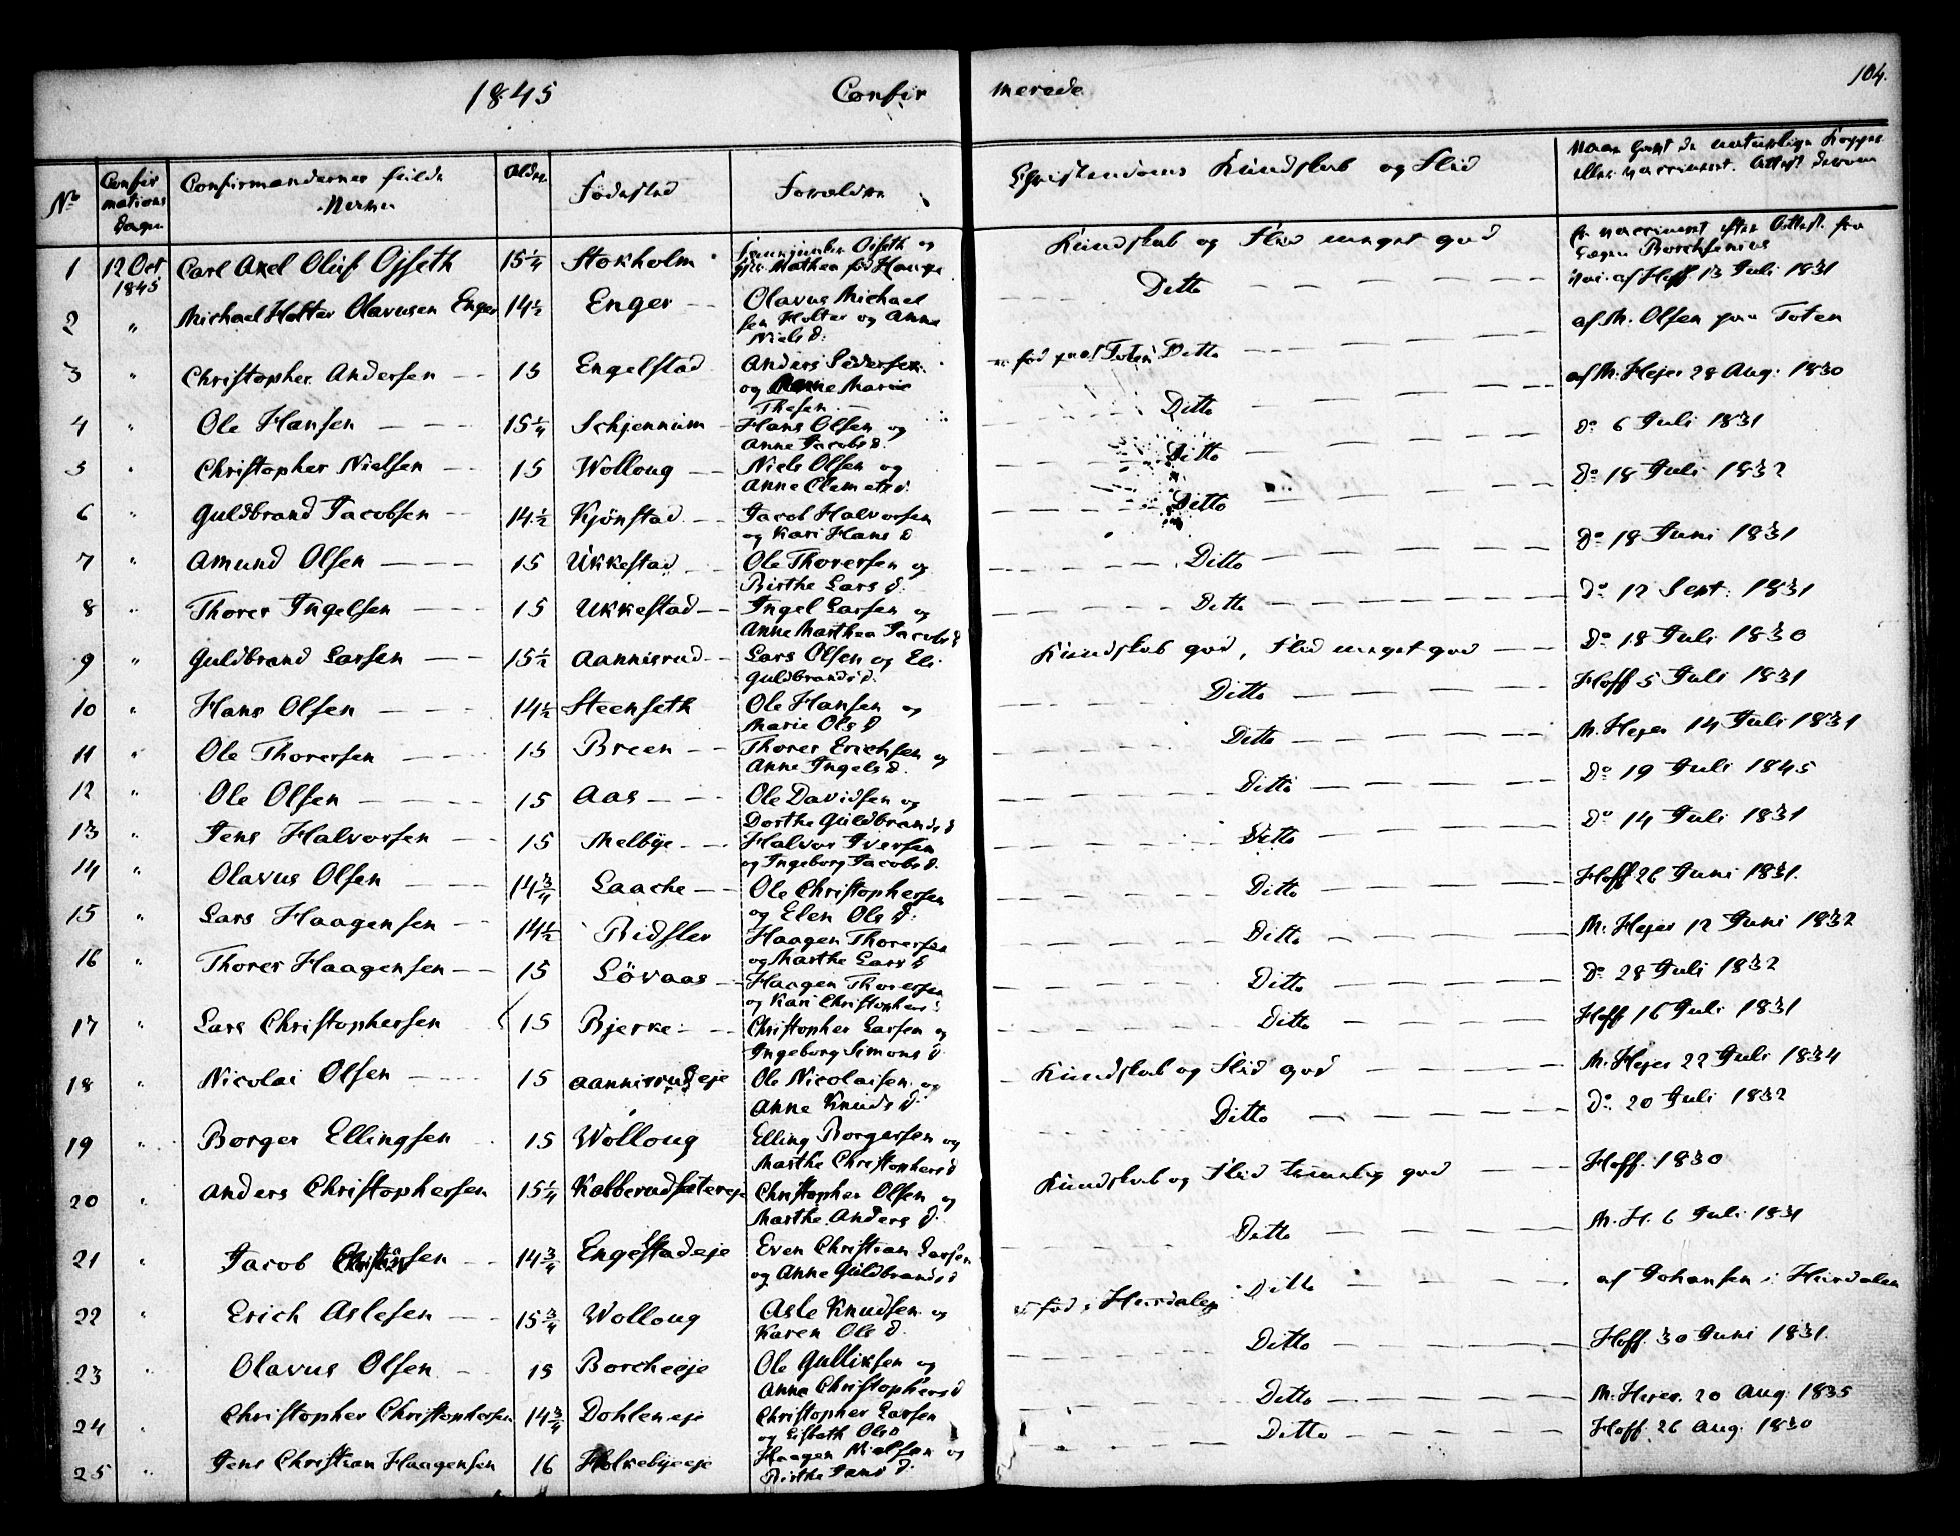 1845 Confirmerede 104.
No
Confirmations Dagen
Confirmandernes fulde Navne
Alder
Fødested
Forældre
Christendoms Kundskab og Flid
Naar havt de naturlige Kopper eller vaccineret. Attest derom
1 12 Oct 1845 Carl Axel Oluf Ofseth 15 1/4 Stokholm Ofseth og Mathea fød Hauge Kundskab og Flid meget god er vaccineret efter Attest fra Borchsenius
2 " Michael Holter Olavusen Enger 14 1/2 Enger Olavus Michaelsen Holter og Anne Niels d. Ditto af Hoff 13 Juli 1831
3 " Christopher Andersen 15 Engelstad Anders Pedersen og Anne Marie Thesen er fød paa Toten Ditto af M. Olsen paa Toten
4 " Ole Hansen 15 1/4 Schjennum Hans Olsen og Anne Jacobs d. Ditto af M. Hejer 28 Aug: 1830
5 " Christopher Nielsen 15 Wolloug Niels Olsen og Anne Clemets d. Ditto Do 6 Juli 1831
6 " Guldbrand Jacobsen 14 1/2 Kjønstad Jacob Halvorsen og Kari Hans d Ditto Do 18 Juli 1832
7 " Amund Olsen 15 Ukkestad Ole Thoresen og Birthe Lars d. Ditto Do 18 Juni 1831
8 " Thorer Ingelsen 15 Ukkestad Ingel Larsen og Anne Marthea Jacobs d Ditto Do 12 Sept: 1831
9 " Guldbrand Larsen 15 1/2 Aannisrud Lars Olsen og Eli Guldbrands d. Kundskab god, Flid meget god Do 18 Juli 1830
10 " Hans Olsen 14 1/2 Steenseth Ole Hansen og Marie Ols d Ditto Hoff 5 Juli 1831
11 " Ole Thorersen 15 Breen Thorer Erichsen og Anne Ingels d. Ditto M. Hejer 14 Juli 1831
12 " Ole Olsen 15 Aas Ole Davidsen og Dorthe Guldbrands d Ditto Do 19 Juli 1845
13 " Jens Halvorsen 15 Melbye Halvor Iversen og Ingeborg Jacobs d. Ditto Do 14 Juli 1831
14 " Olavus Olsen 14 3/4 Laache Ole Christophersen og Elen Ols d. Ditto Hoff 26 Juni 1831.
15 " Lars Haagensen 14 1/2 Ridsler Haagen Thorersen og Marthe Lars d Ditto M. Hejer 12 Juni 1832
16 " Thorer Haagensen 15 Løvaas Haagen Thorersen og Kari Christophers d Ditto Do 28 Juli 1832
17 " Lars Christophersen 15 Bjerke Christopher Larsen og Ingeborg Simons d Ditto Hoff 16 Juli 1831
18 " Nicolai Olsen 15 Aannisrudeje Ole Nicolaisen og Anne Knuds d. Kundskab og Flid god M. Hejer 22 Juli 1834
19 " Borger Ellingsen 15 Wolloug Elling Borgersen og Marthe Christophers d Ditto Do 20 Juli 1832
20 " Anders Christophersen 15 1/4 Kobberudsætereje Christopher Olsen og Marthe Anders d. Kundskab og Flid temmelig god Hoff. 1830
21 " Jacob Christiansen 14 3/4 Engelstadeje Even Christian Larsen og Anne Guldbrands d Ditto M. H. 6 Juli 1831
22 " Erich Aslesen 15 3/4 Wolloug Asle Knudsen og Karen Ols d. er fød i Hurdalen Ditto af Johansen i Hurdalen
23 " Olavus Olsen 15 Borcheeje Ole Gulliksen og Anne Christophers d Ditto Hoff. 30 Juni 1831.
24 " Christopher Christophersen 14 3/4 Dohleneje Christopher Larsen og Lisbeth Ols d Ditto M. Hejer. 20 Aug. 1835
25 " Jens Christian Haagensen 16 Holkebyeeje Haagen Nielsen og Birthe Jans d. Ditto Hoff 26 Aug. 1830